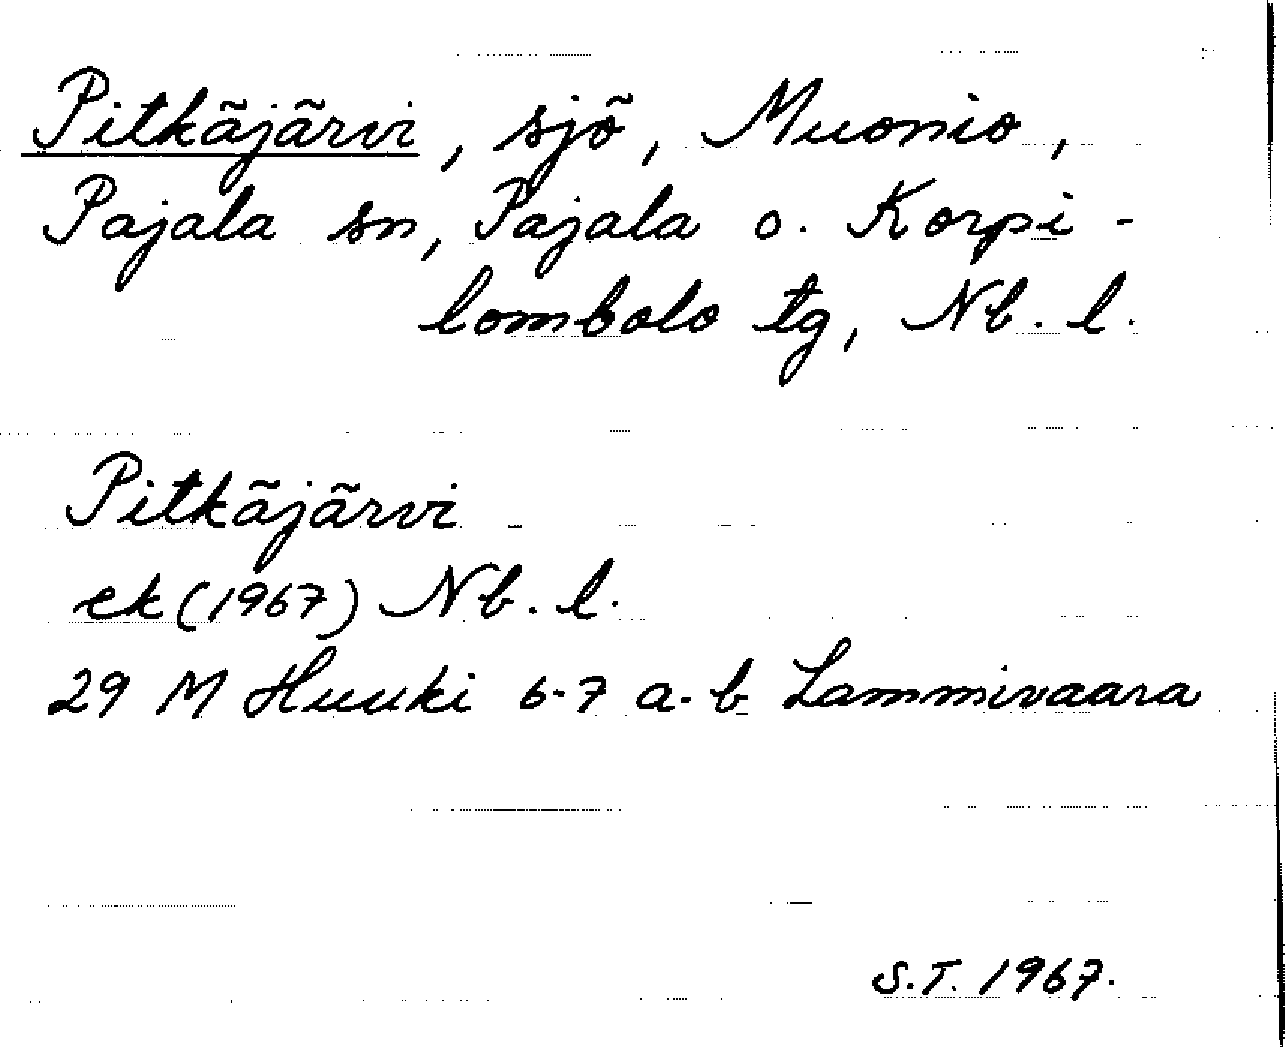 Pitkäjärvi, sjö, Muonio,
Pajala sn, Pajala o. Korpi-
lombolo tg, Nb. l.
Pitkäjärvi
ek (1967) Nb. l.
29 M Huuki 6-7 a-b Lammivaara
S.T. 1967.